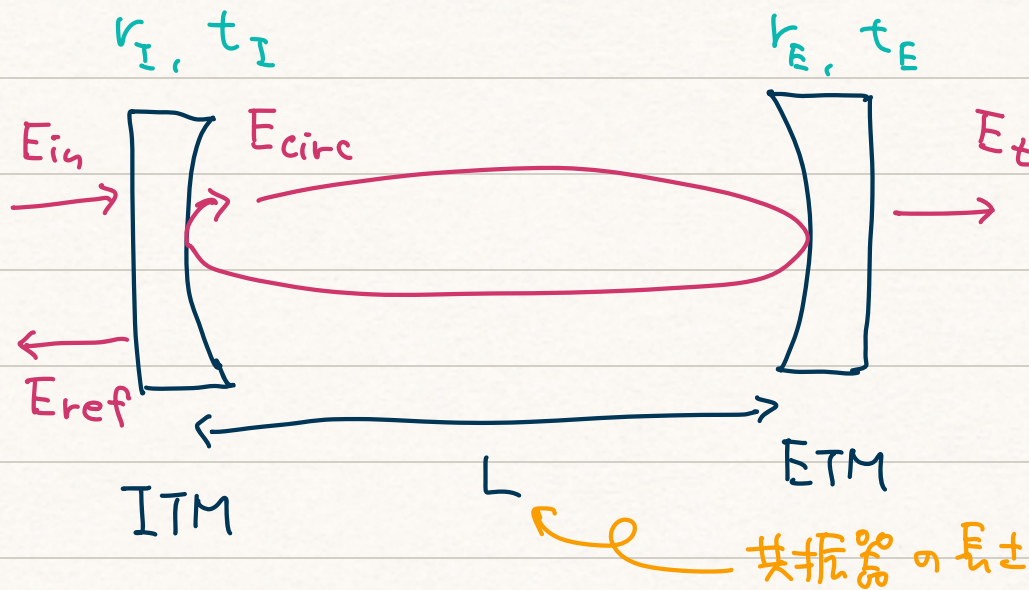 r_I, t_I
r_E, t_E
E_in
E_circ
E_t
E_ref
L
ITM
ETM
共振器の長さ